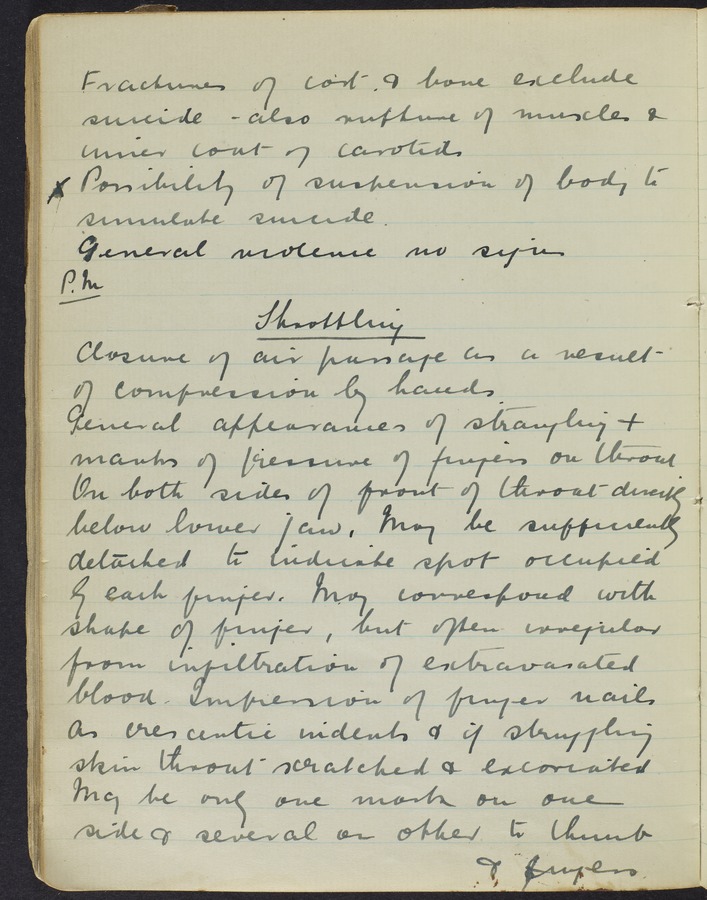 Fractures of cart. & bone exclude
suicide - also rupture of muscles &
inner coat of carotids
x Possibility of suspension of body to
simulate suicide.
General violence no signs
P.M
Throttling
Closure of air passage as a result
of compression by hands
General appearances of strangling +
marks of pressure of fingers on throat
On both sides of front of throat directly
below lower jaw. May be sufficiently
detached to indicate spot occupied
by each finger. May correspond with
shape of finger, but often irregular
from infiltration of extravasated
blood. Impression of finger nails
as crescentic indents & if struggling
skin throat scratched & excoriated
May be only one mark on one
side & several on other to thumb
& fingers